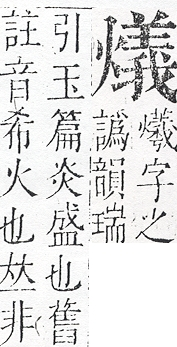 爔
爔字之
譌韻瑞
引玉篇炎盛也舊
註音希火也𠀤非